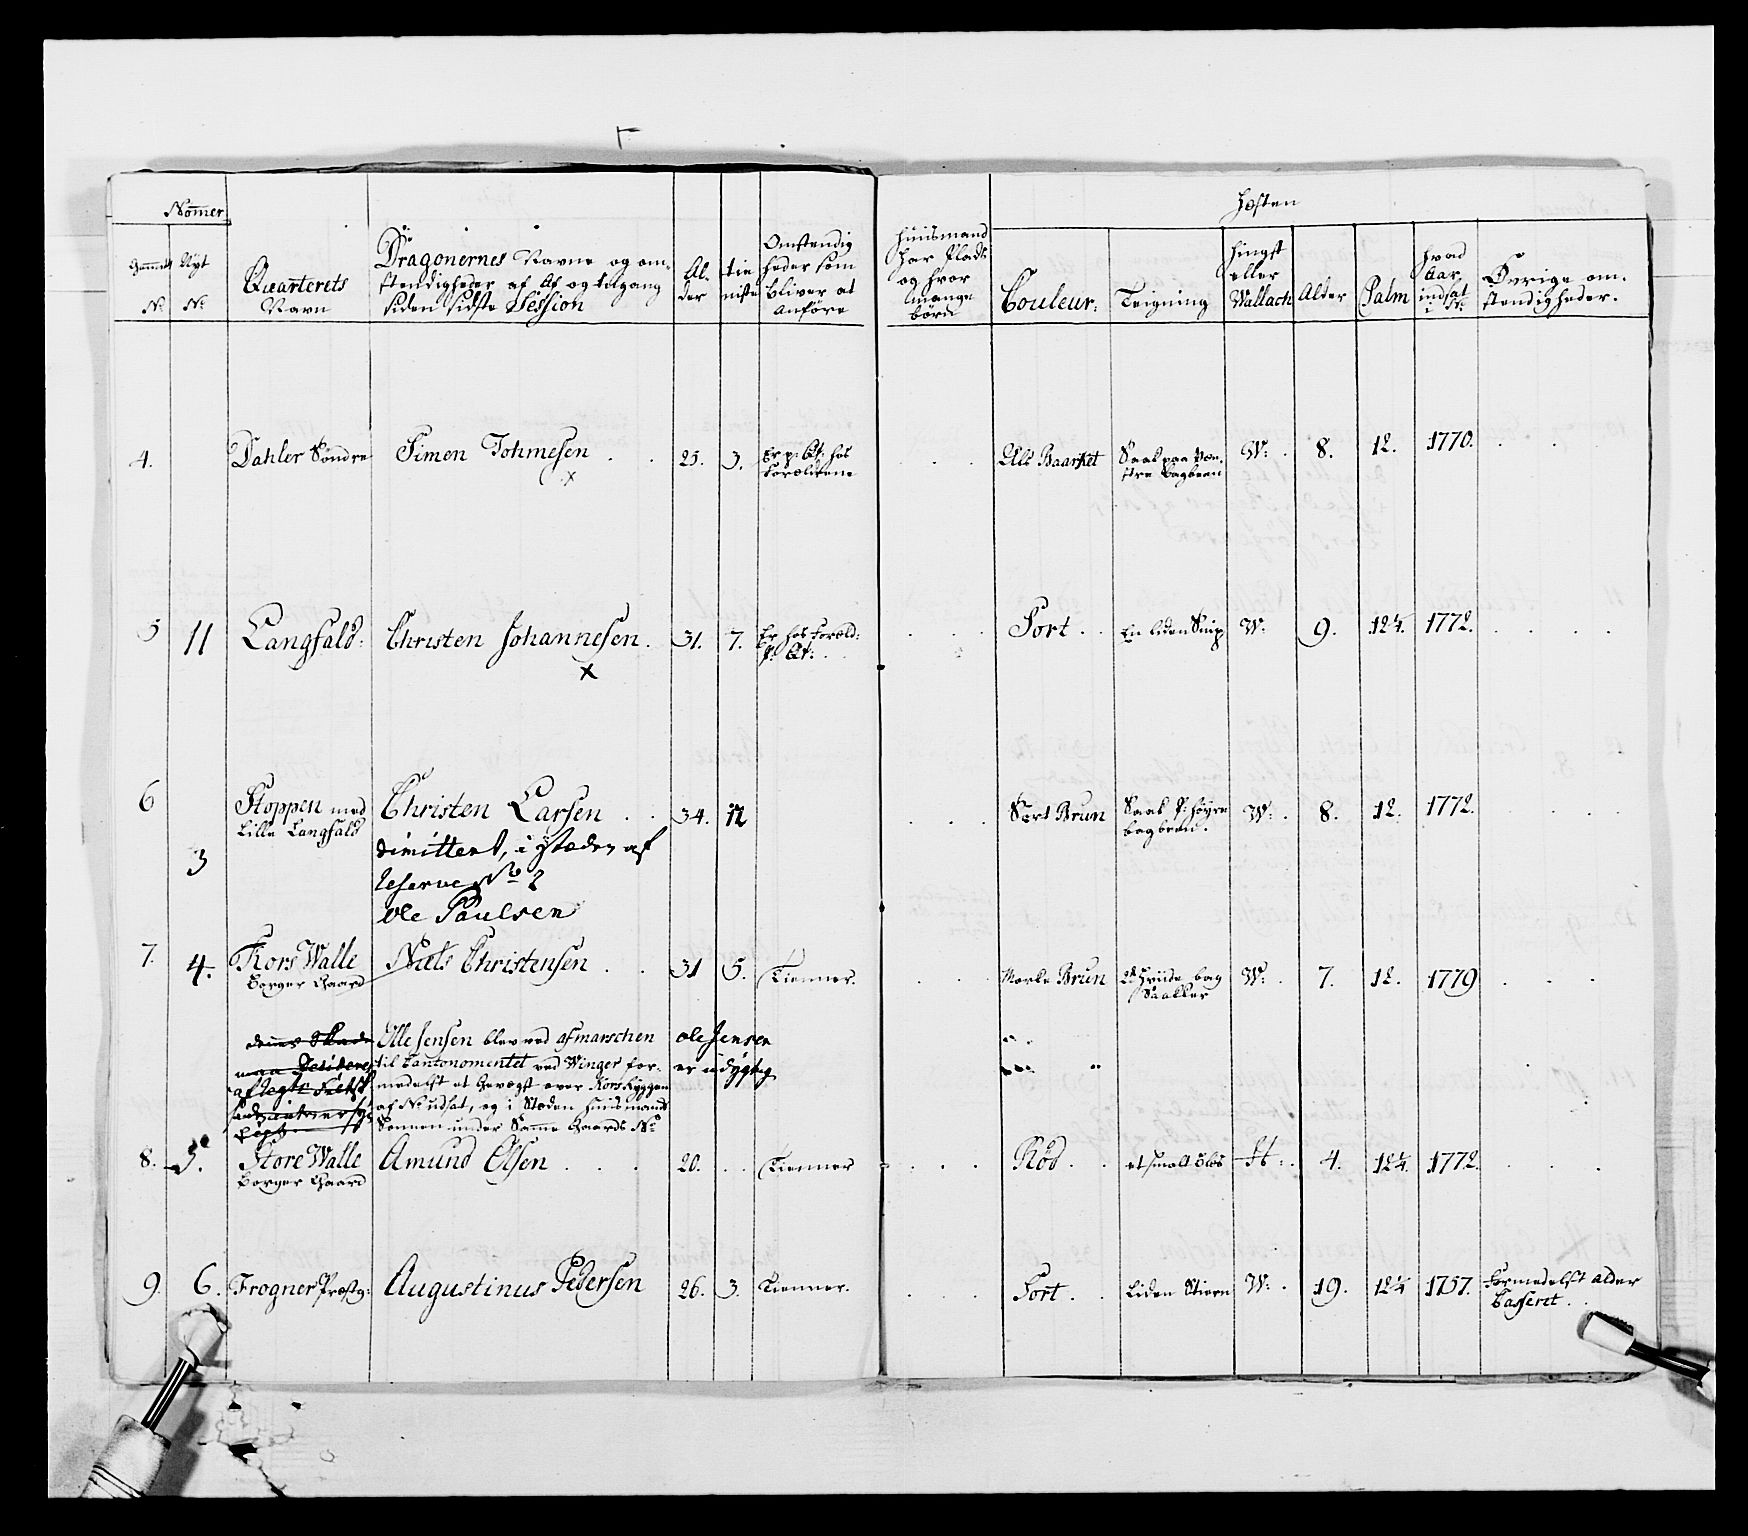 Nomer
Hesten
Gammelt Nyt
No No
Quarterets
Navn
Dragonernes Navne og om-
stendigheder af Af og tilgang
siden sidste Session
Al-
der
tie
niste
Omstendig
heder som
bliver at
anføre
Huusmand
har Plads
og hvor
mange
børn
Couleur:
Teigning
Hingst
eller
Wallach
Alder
Palm
hvad
Aar
indsat
i No
Øvrige om-
stendigheder.
4. Dahler Søndre Simen Tohmesen . . 25. 3. Er p: Qt: hos
Forældrene
x
Baarket Saal paa ven-
stre bagbeen W: . 8. 12. 1770. . .
5 11 Langfald: Christen Johannesen . 31. 7. Er hos Foræld:
P: Qt: . .
x
Sort . . En liden Snip W: 9. 12¼. 1772. . . .
6 Stoppen med
Lille Langfald
Christen Larsen . . 34. 12
3 dimittert, i Stæden af
Reserve No 2
Ole Paulsen
Sort Brun Saal P: høyre
bagbeen. W: . 8. 12. 1772. . .
7. 4. Kors Walle
Borger Gaard
Niels Christensen . . 31 5. Tienner.
Mørke Brun 2de Hviide bag
Saaller W: . 7. 12. 1779 . . .
Olle Jensen blev ved afmarschen
til Cantonomentet ved Winger for-
medelst et Gevæxt over Kors Ryggen
af No udsat, og i Stæden Huusmands
Sønnen under Samme Gaards No
Ole Jensen
er udygtig
8. 5. Store Walle
Borger Gaard
Amund Olsen . . . 20. . . Tienner
Rød . . et smalt Blis H: . 4. 12¼. 1772. . . .
9. 6. Frogner Præstg: Augustinus Pedersen 26. 3. Tienner.
Sort . . Liden Stiern W: . 19. 12¼ 1757. Formedelst Alder
Casseret . .